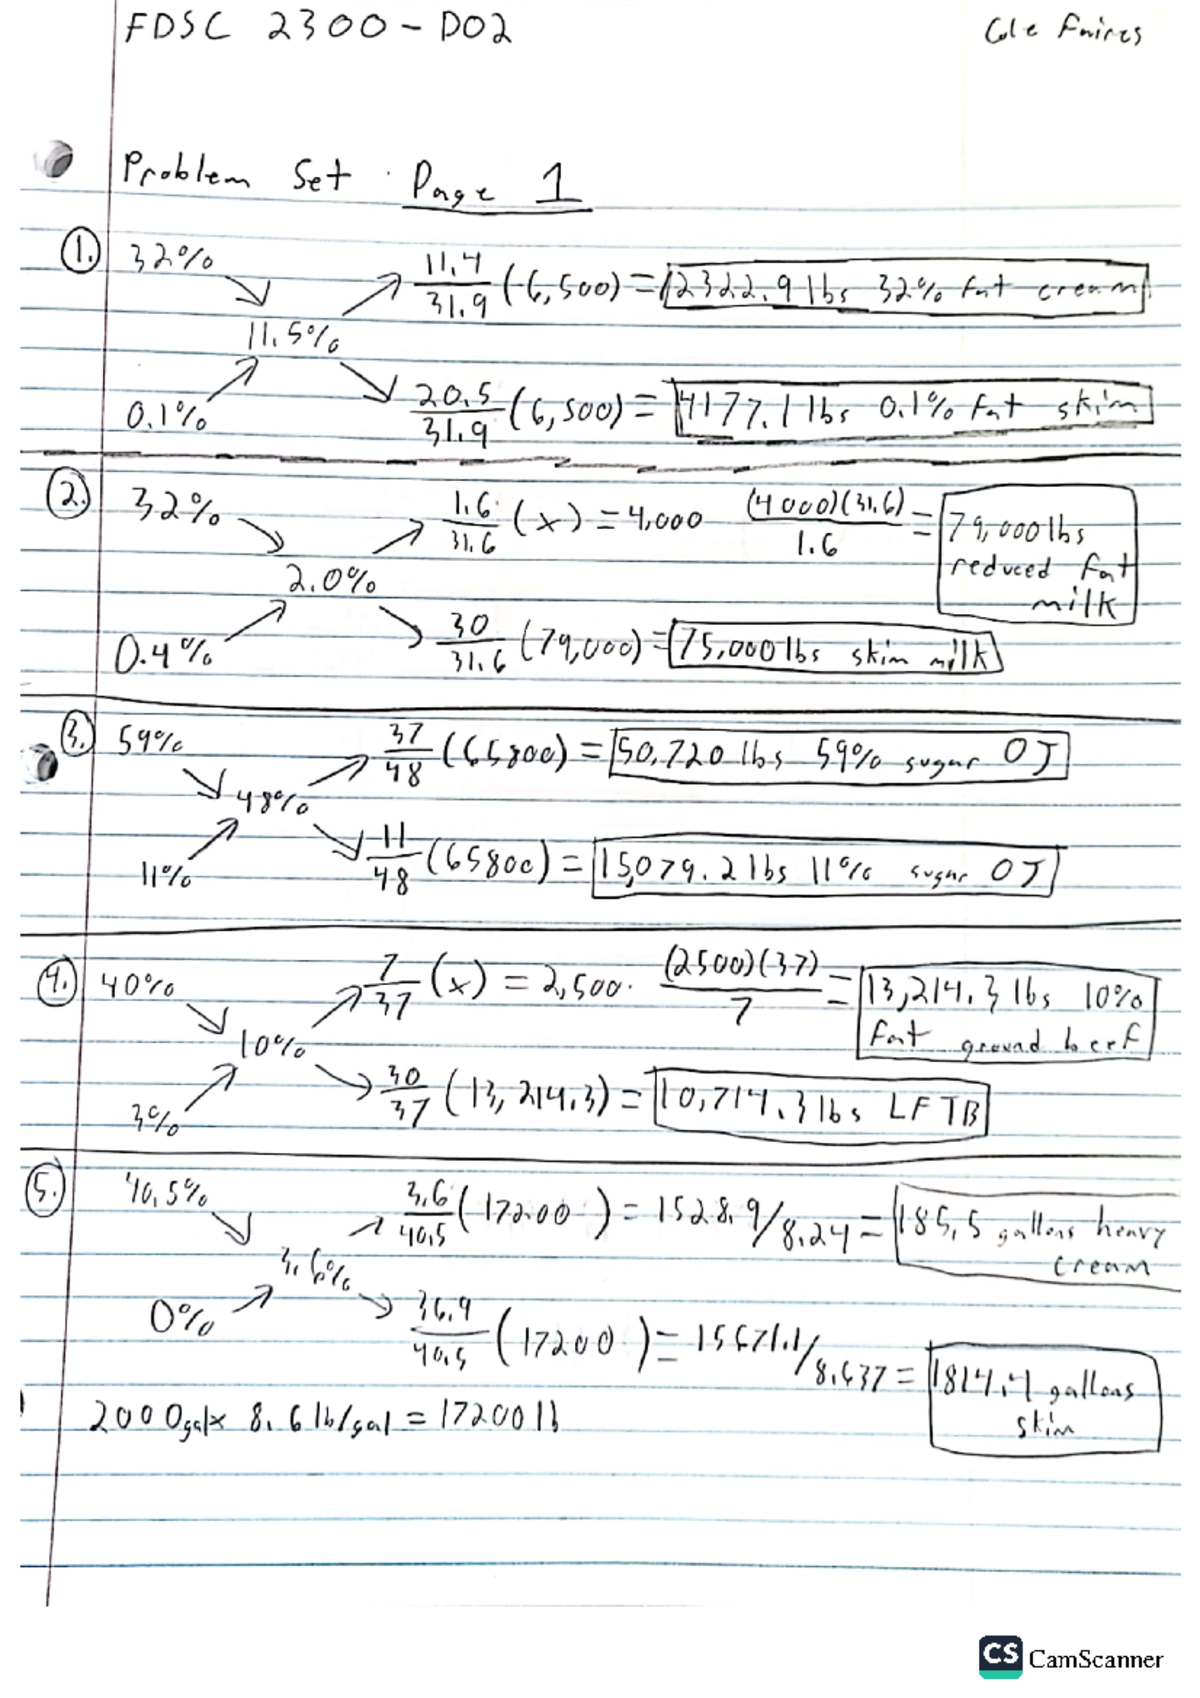 FDSC 2300 - D02
Cole Faires
Problem Set Page 1
1. 32%
11.4/31.9 (6,500) = 2322.9 lbs 32% fat cream
11.5%
0.1%
20.5/31.9 (6,500) = 4177.1 lbs 0.1% fat skim
2. 32%
1.6/31.6 (x) = 4,000 (4000)(31.6)/1.6 = 79,000 lbs reduced fat milk
2.0%
0.4%
30/31.6 (79,000) = 75,000 lbs skim milk
3. 59%
37/48 (65800) = 50,720 lbs 59% sugar OJ
48%
11%
11/48 (65800) = 15,079.2 lbs 11% sugar OJ
4. 40%
7/37 (x) = 2,500. (2500)(37)/7 = 13,214.3 lbs 10% fat ground beef
10%
3%
30/37 (13,214.3) = 10,714.3 lbs LFTB
5. 40.5%
3.6/40.5 (17200) = 1528.9/8.24 = 185.5 gallons heavy cream
3.6%
0%
36.9/40.5 (17200) = 15671.1/8.637 = 1814.4 gallons skim
2000gal x 8.6 lb/gal = 17200 lb
CS CamScanner